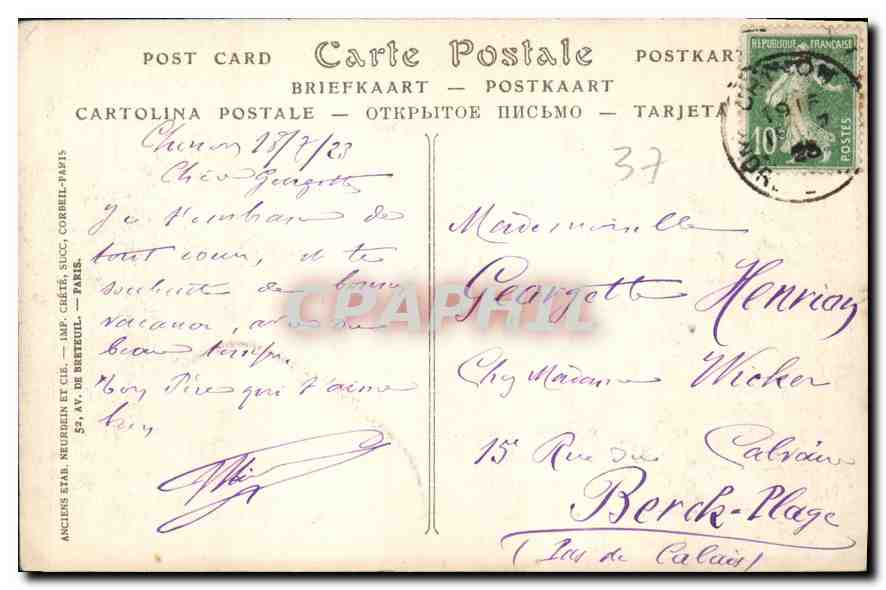 POST CARD Carte Postale POSTKART
BRIEFKAART — POSTKAART
CARTOLINA POSTALE — ОТКРЫТОЕ ПИСЬМО — TARJETA
RÉPUBLIQUE FRANÇAISE
10
POSTES
CHINON
37
ANCIENS ETAB. NEURDEIN ET CIE. — IMP. CRÉTÉ, SUCC, CORBEIL-PARIS
52, AV. DE BRETEUIL. — PARIS.
Chinon 18/7/23
Chère Georgette
Je t'embrasse de
tout coeur, et te
souhaite de bonnes
vacances, avec du
beau temps.
Ton Père qui t'aime
bien
Mademoiselle
Georgette Henrion
Chez Madame Wicker
15 Rue du Calvaire
Berck-Plage
(Pas de Calais)
CPAPHIL